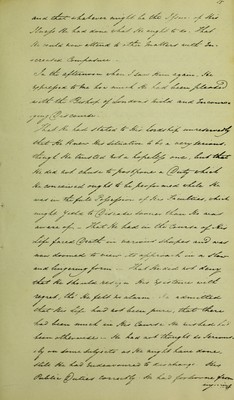 15
and that whatever might be the Issue of His
Illness He had done what He ought to do. That
He could now attend to other matters with in-
creased Composure.
In the afternoon when I saw Him again, He
expressed to me how much He had been pleased
with the Bishop of London's kind and encoura-
ging discourse.
That He had stated to His Lordship unreservedly
that He knew His situation to be a very serious,
though He trusted not a hopeless one, but that
He did not choose to postpone a Duty which
He conceived ought to be performed while He
was in the full Possession of His Faculties, which
might yield to Disease sooner than He was
aware of. — That He had in the Course of His
Life faced Death in various shapes and was
now doomed to view its approach in a slow
and lingering form — That He did not deny
that He should resign His Existence with
regret, tho' He felt no alarm. He admitted
that His Life had not been pure, that there
had been much in His Course He wished had
been otherwise — He had not thought so serious-
ly on some subjects as He might have done,
still He had endeavoured to discharge His
Public Duties correctly. He had forborne from